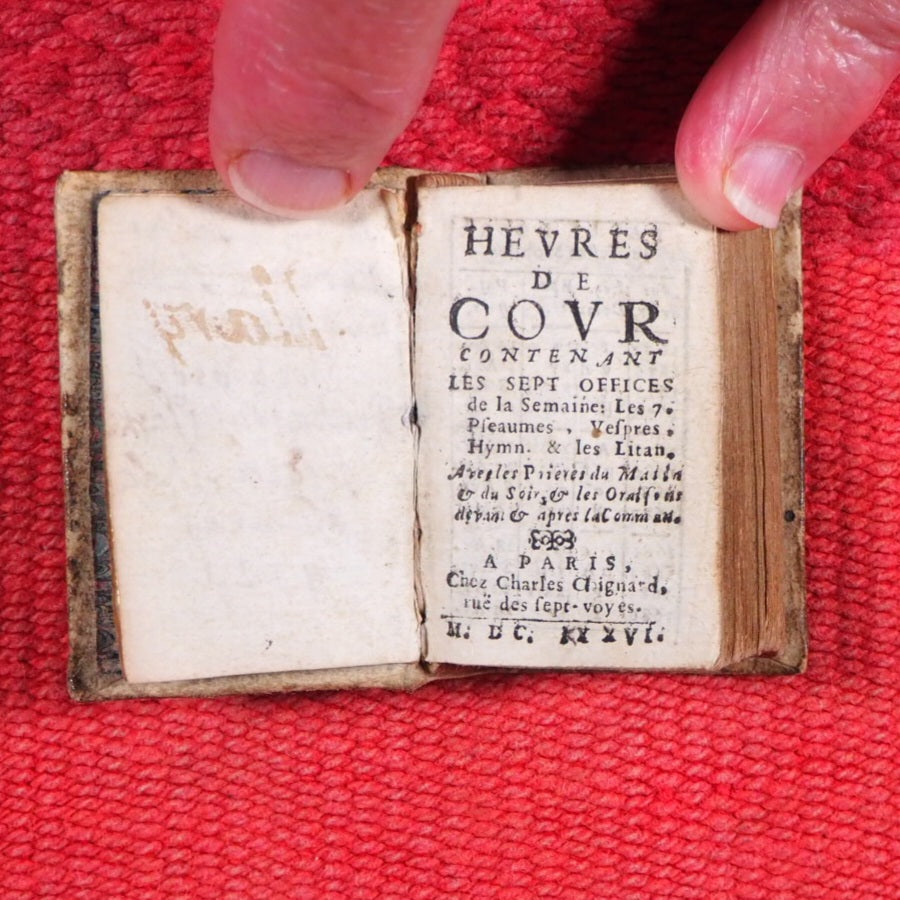 HEVRES
DE
COVR
CONTENANT
LES SEPT OFFICES
de la Semaine: Les 7.
Pſeaumes, Veſpres,
Hymn. & les Litan.
Avec les Prieres du Matin
& du Soir, & les Oraiſons
devant & apres la Commun.
A PARIS,
Chez Charles Chignard,
ruë des ſept-voyes.
M. DC. XXXVI.